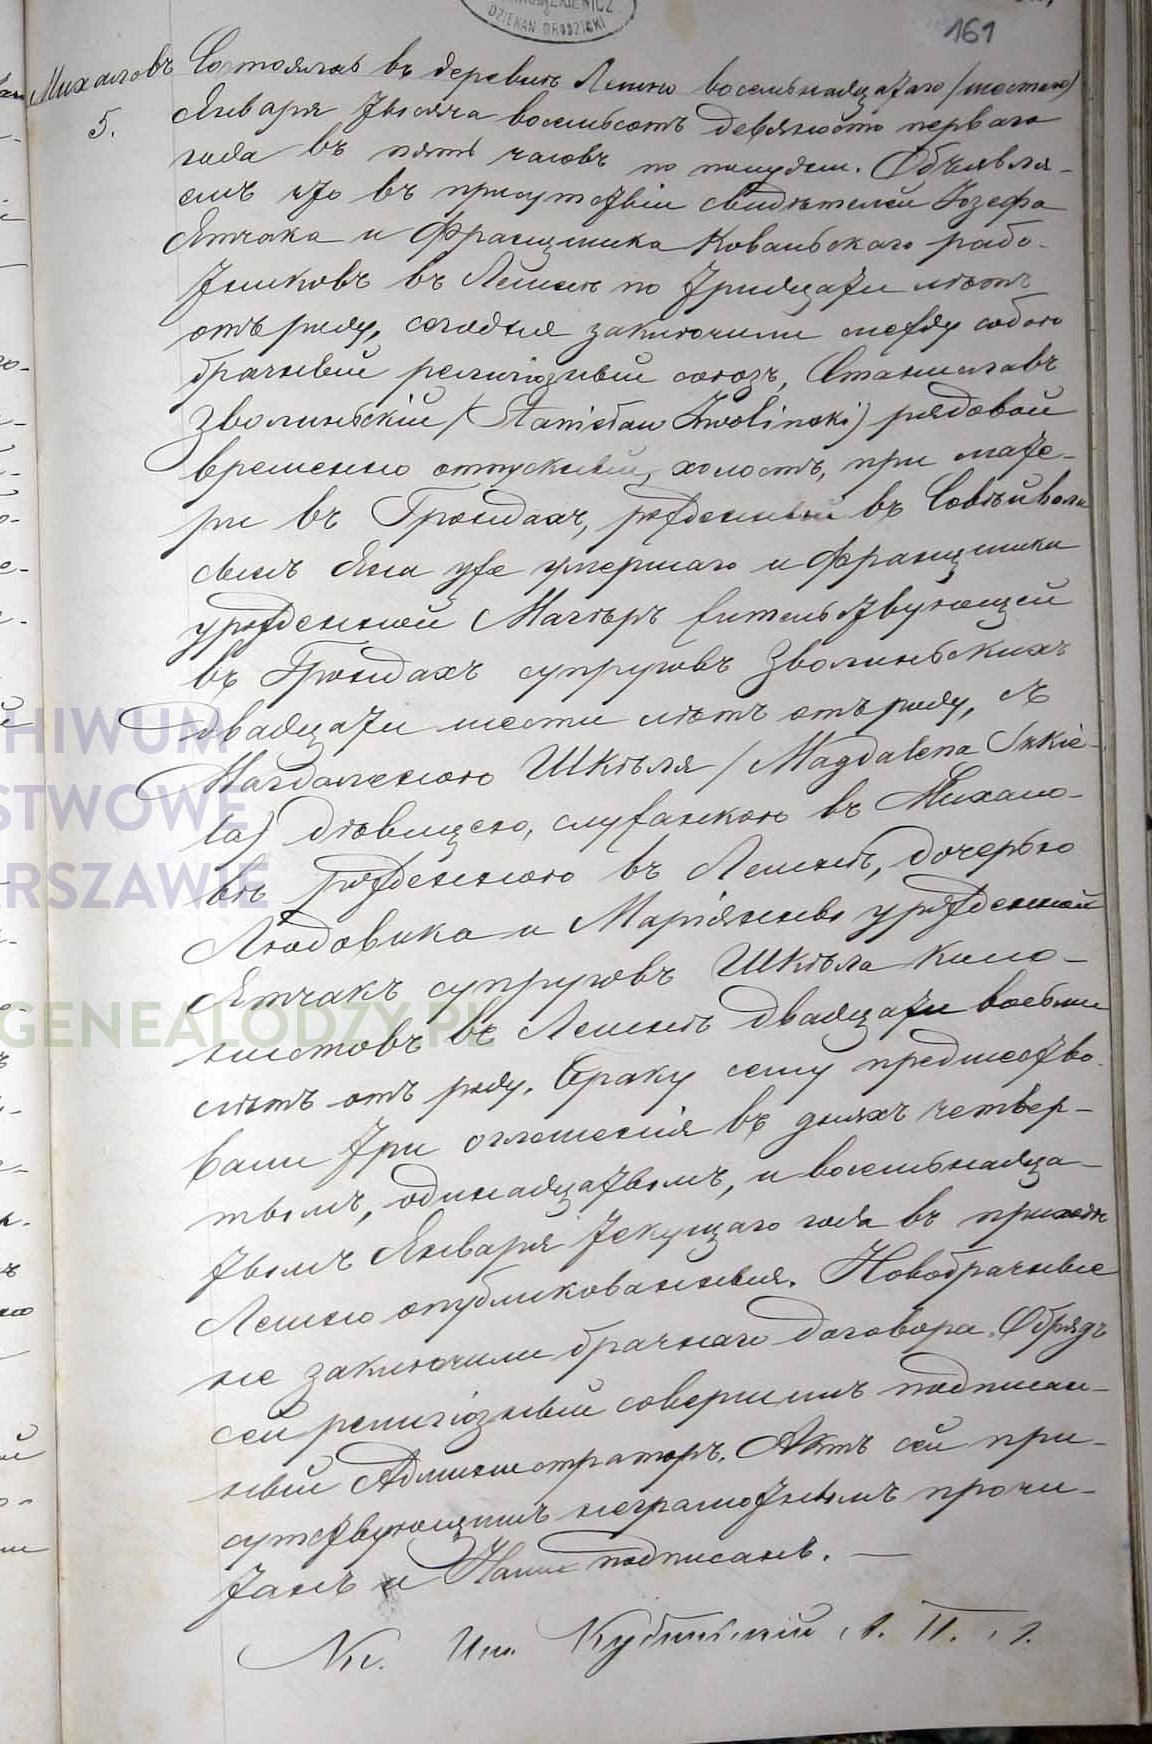 DZIEKAN GRODZISKI
161
Михаловъ
5.
Состоялось въ деревнѣ Лешно восемьнадцатаго (шестаго)
Января тысяча восемьсотъ девяносто перваго
года въ пять часовъ по полудни. Объявля-
емъ что въ присутствіи свидѣтелей Іозефа
Ятчака и Францишка Ковальскаго рабо-
тниковъ въ Лешнѣ по тридцати лѣтъ
отъ роду, сегодня заключили между собою
брачный религіозный союзъ, Станиславъ
Зволиньскій (Stanisław Zwolinski) рядовой
временно отпускный, холостъ, при мате-
ри въ Грондахъ, рожденный въ Совьейволи
сынъ Яна уже умершаго и Францишки
урожденной Магѣръ жительствующей
въ Грондахъ супруговъ Зволиньскихъ
двадцати шести лѣтъ отъ роду, съ
Магдаленою Шкѣля (Magdalena Szkie-
la) дѣвицею, служанкою въ Михало-
вѣ рожденною въ Лешнѣ, дочерью
Людовика и Маріянны урожденной
Ятчакъ супруговъ Шкѣла коло-
нистовъ въ Лешнѣ двадцати восьми
лѣтъ отъ роду. Браку сему предшество-
вали три оглошенія въ дняхъ четвер-
тымъ, одинадцатымъ, и восемьнадца-
тымъ Января текущаго года въ приходѣ
Лешно опубликованныя. Новобрачные
не заключили брачнаго договора. Обрядъ
сей религіозный совершилъ подписан-
ный Администраторъ. Актъ сей при-
сутствующимъ неграмотнымъ прочи-
танъ и Нами подписанъ. —
Кс.
ARCHIWUM
PAŃSTWOWE
WARSZAWIE
GENEALODZY.PL